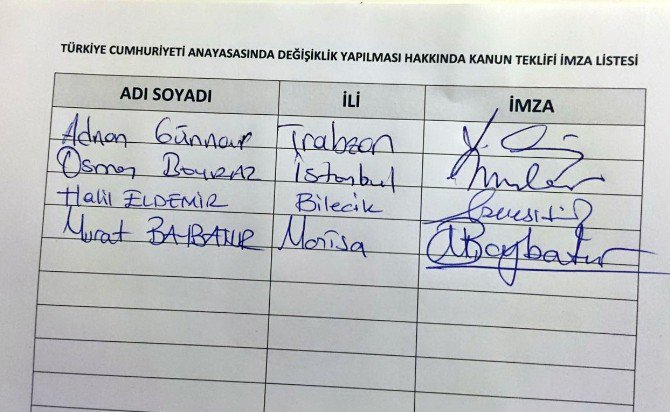 TÜRKİYE CUMHURİYETİ ANAYASASINDA DEĞİŞİKLİK YAPILMASI HAKKINDA KANUN TEKLİFİ İMZA LİSTESİ
ADI SOYADI İLİ İMZA
Adnan Günnar Trabzon
Osman BOYRAZ İstanbul
Halil ELDEMİR Bilecik
Murat BAYBATUR Manisa MBaybatur